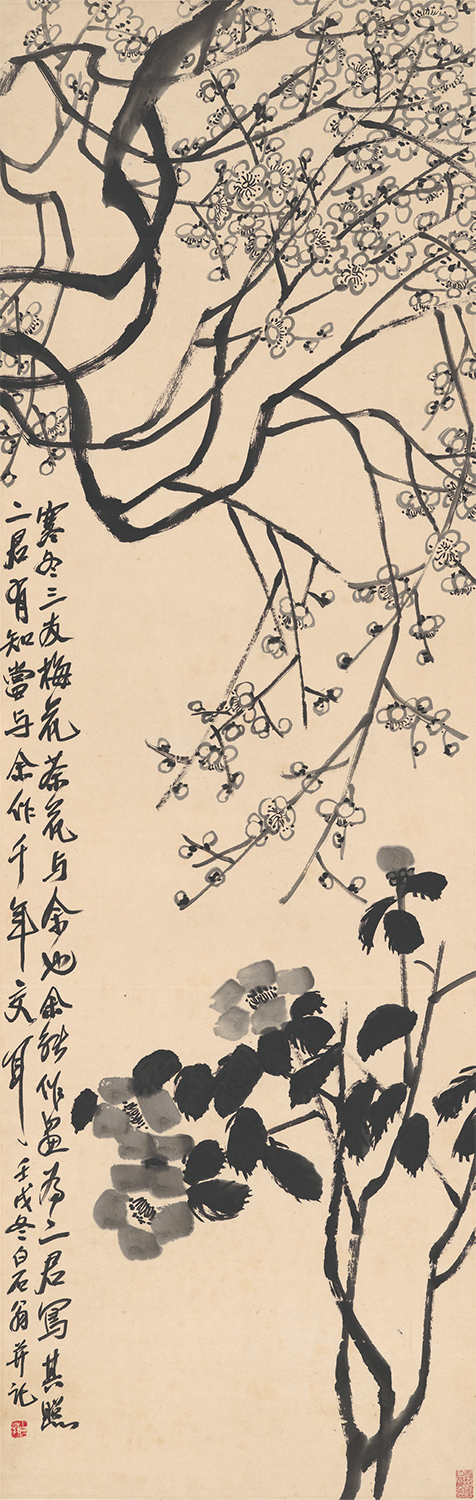 寒冬三友梅花茶花与余也余能作画為二君写其照
二君有知当与余作千年交耳、壬戌冬白石翁并記